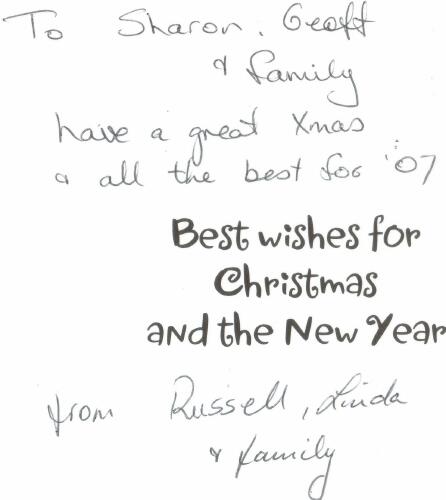 To Sharon, Geoff
& family
have a great Xmas
& all the best for '07
Best wishes for
Christmas
and the New Year
from Russell, Linda
& family